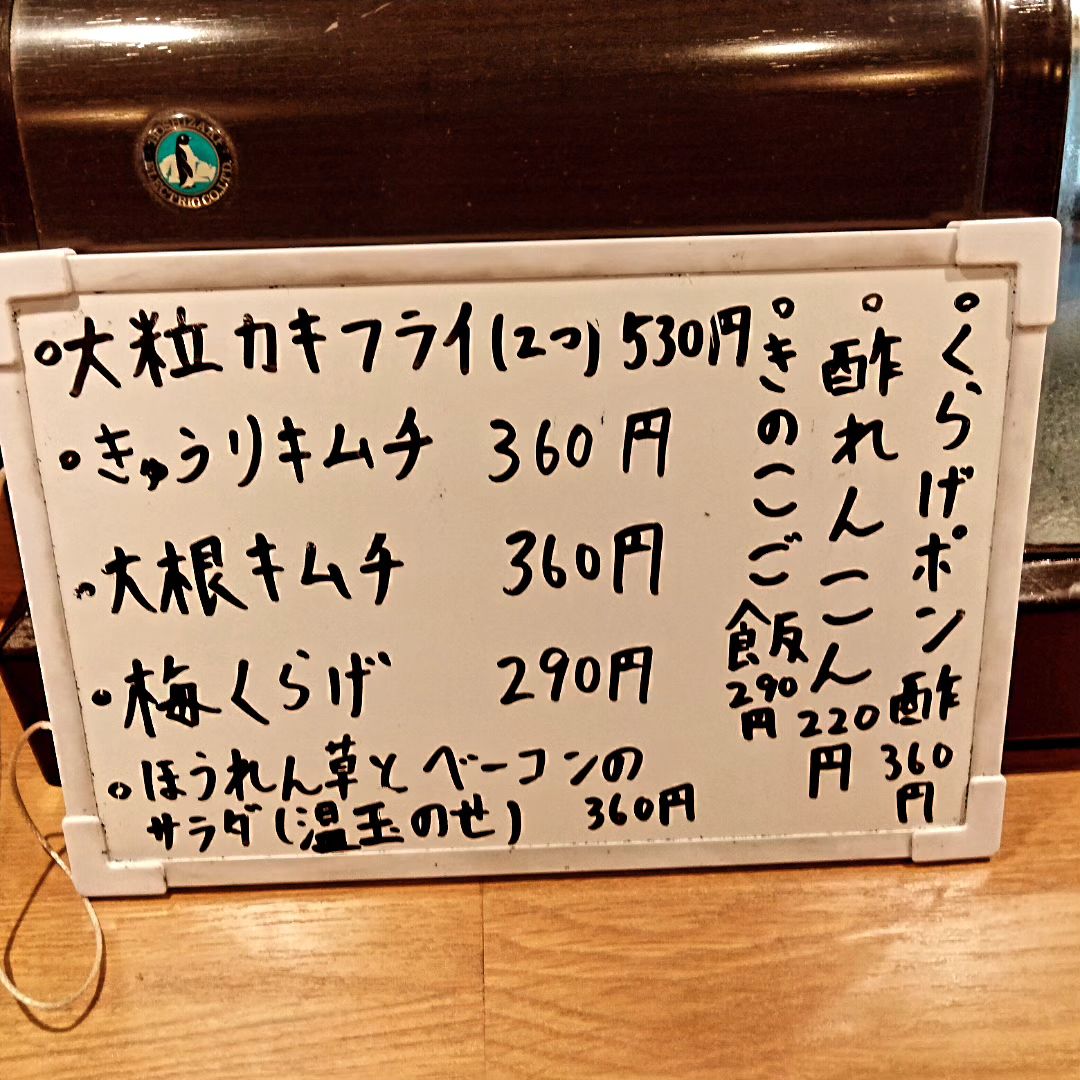 HOSHIZAKI ELECTRIC CO.LTD.
大粒カキフライ(2つ) 530円
きゅうりキムチ 360円
大根キムチ 360円
梅くらげ 290円
ほうれん草とベーコンの
サラダ(温玉のせ) 360円
くらげポン酢 360円
酢れんこん 220円
きのこご飯 290円